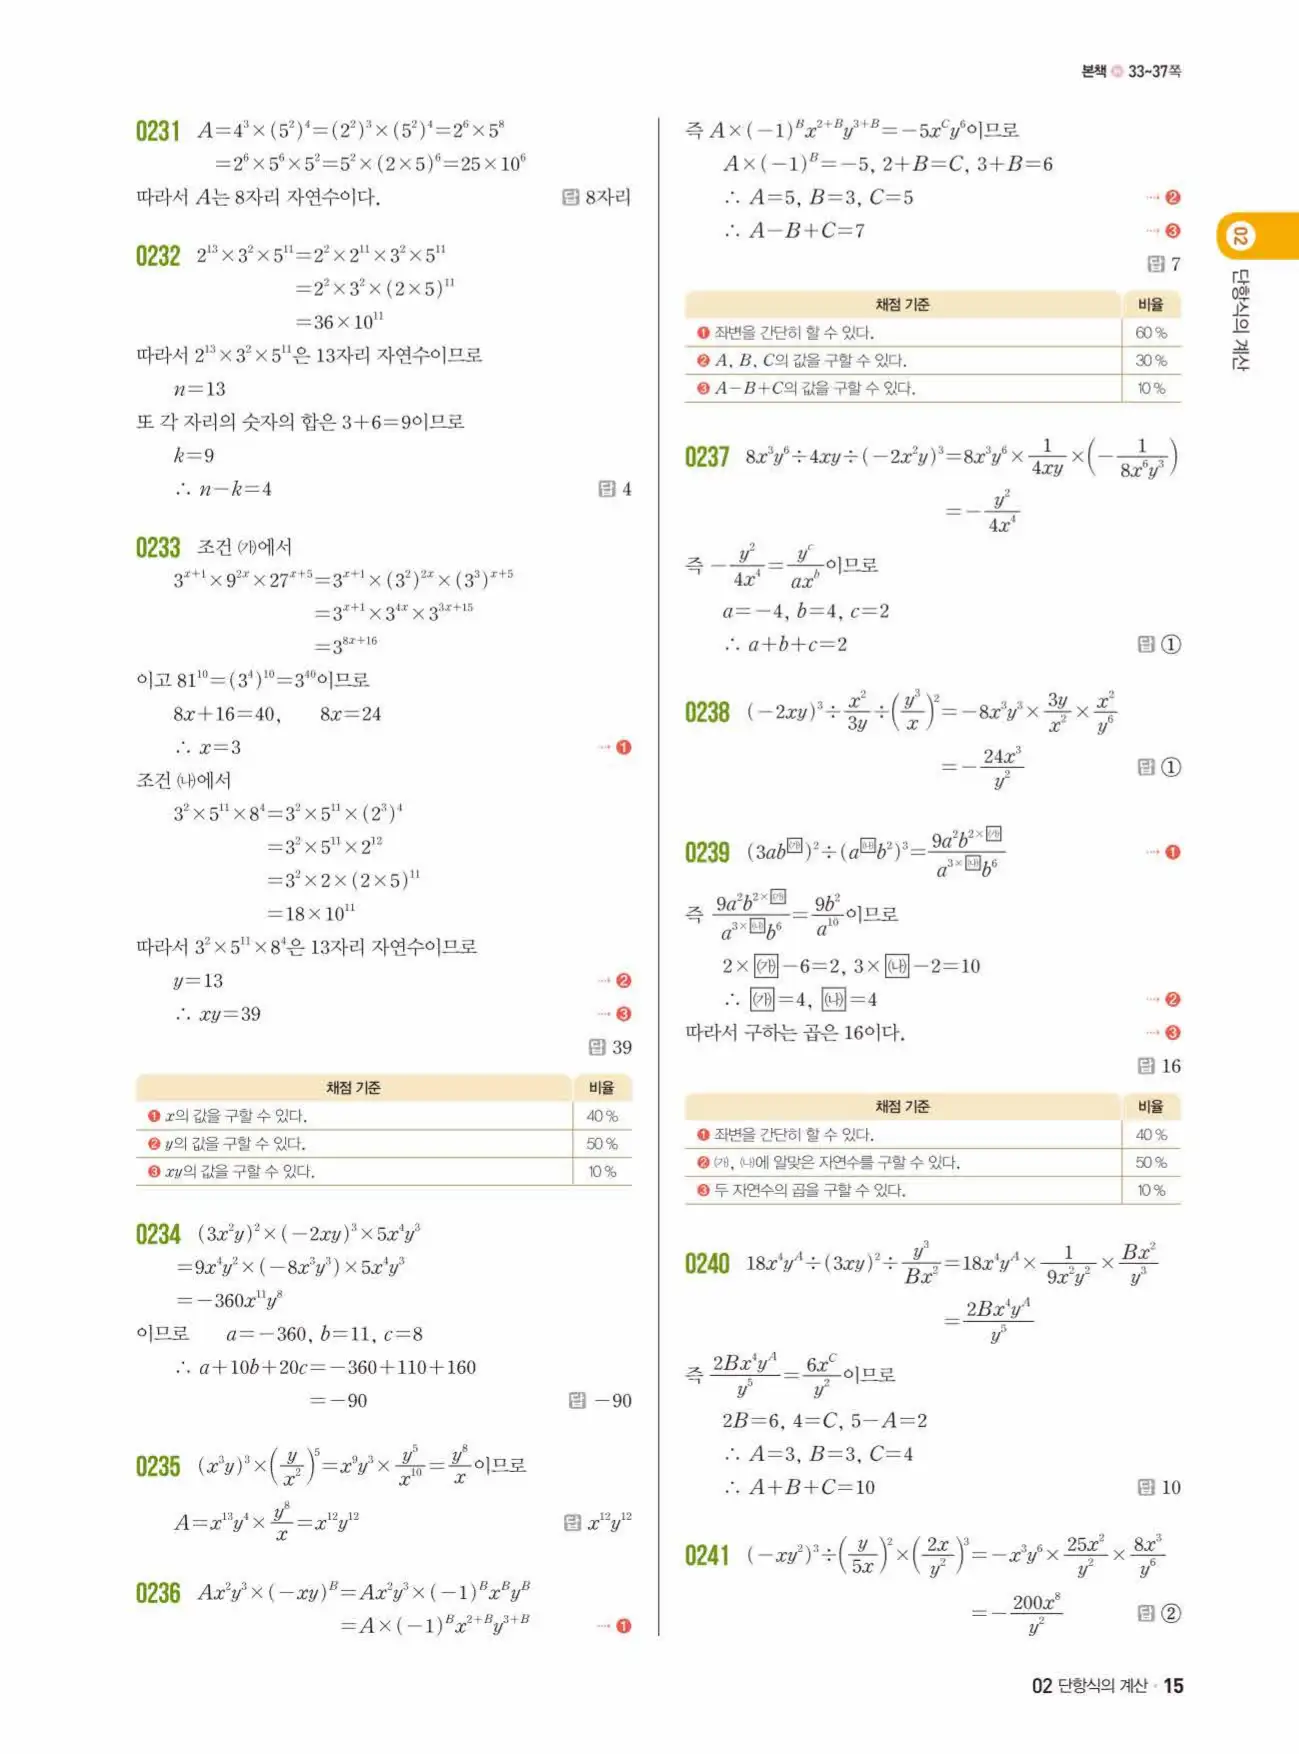 본책 33~37쪽
0231 A=4³×(5²)⁴=(2²)³×(5²)⁴=2⁶×5⁸
=2⁶×5⁶×5²=5²×(2×5)⁶=25×10⁶
따라서 A는 8자리 자연수이다. 답 8자리
0232 2¹³×3²×5¹¹=2²×2¹¹×3²×5¹¹
=2²×3²×(2×5)¹¹
=36×10¹¹
따라서 2¹³×3²×5¹¹은 13자리 자연수이므로
n=13
또 각 자리의 숫자의 합은 3+6=9이므로
k=9
∴ n-k=4 답 4
0233 조건 ㈎에서
3^(x+1)×9^(2x)×27^(x+5)=3^(x+1)×(3²)^(2x)×(3³)^(x+5)
=3^(x+1)×3^(4x)×3^(3x+15)
=3^(8x+16)
이고 81¹⁰=(3⁴)¹⁰=3⁴⁰이므로
8x+16=40, 8x=24
∴ x=3 ⋯→ ❶
조건 ㈏에서
3²×5¹¹×8⁴=3²×5¹¹×(2³)⁴
=3²×5¹¹×2¹²
=3²×2×(2×5)¹¹
=18×10¹¹
따라서 3²×5¹¹×8⁴은 13자리 자연수이므로
y=13 ⋯→ ❷
∴ xy=39 ⋯→ ❸
답 39
채점 기준 비율
❶ x의 값을 구할 수 있다. 40 %
❷ y의 값을 구할 수 있다. 50 %
❸ xy의 값을 구할 수 있다. 10 %
0234 (3x²y)²×(-2xy)³×5x⁴y³
=9x⁴y²×(-8x³y³)×5x⁴y³
=-360x¹¹y⁸
이므로 a=-360, b=11, c=8
∴ a+10b+20c=-360+110+160
=-90 답 -90
0235 (x³y)³×(y/x²)⁵=x⁹y³×y⁵/x¹⁰=y⁸/x이므로
A=x¹³y⁴×y⁸/x=x¹²y¹² 답 x¹²y¹²
0236 Ax²y³×(-xy)^B=Ax²y³×(-1)^B x^B y^B
=A×(-1)^B x^(2+B) y^(3+B) ⋯→ ❶
즉 A×(-1)^B x^(2+B) y^(3+B)=-5x^C y⁶이므로
A×(-1)^B=-5, 2+B=C, 3+B=6
∴ A=5, B=3, C=5 ⋯→ ❷
∴ A-B+C=7 ⋯→ ❸
답 7
채점 기준 비율
❶ 좌변을 간단히 할 수 있다. 60 %
❷ A, B, C의 값을 구할 수 있다. 30 %
❸ A-B+C의 값을 구할 수 있다. 10 %
0237 8x³y⁶÷4xy÷(-2x²y)³=8x³y⁶×1/4xy×(-1/8x⁶y³)
=-y²/4x⁴
즉 -y²/4x⁴=y^c/ax^b이므로
a=-4, b=4, c=2
∴ a+b+c=2 답 ①
0238 (-2xy)³÷x²/3y÷(y³/x)²=-8x³y³×3y/x²×x²/y⁶
=-24x³/y² 답 ①
0239 (3ab^㈎)²÷(a^㈏b²)³=9a²b^(2×㈎)/a^(3×㈏)b⁶ ⋯→ ❶
즉 9a²b^(2×㈎)/a^(3×㈏)b⁶=9b²/a¹⁰이므로
2×㈎-6=2, 3×㈏-2=10
∴ ㈎=4, ㈏=4 ⋯→ ❷
따라서 구하는 곱은 16이다. ⋯→ ❸
답 16
채점 기준 비율
❶ 좌변을 간단히 할 수 있다. 40 %
❷ ㈎, ㈏에 알맞은 자연수를 구할 수 있다. 50 %
❸ 두 자연수의 곱을 구할 수 있다. 10 %
0240 18x⁴y^A÷(3xy)²÷y³/Bx²=18x⁴y^A×1/9x²y²×Bx²/y³
=2Bx⁴y^A/y⁵
즉 2Bx⁴y^A/y⁵=6x^C/y²이므로
2B=6, 4=C, 5-A=2
∴ A=3, B=3, C=4
∴ A+B+C=10 답 10
0241 (-xy²)³÷(y/5x)²×(2x/y²)³=-x³y⁶×25x²/y²×8x³/y⁶
=-200x⁸/y² 답 ②
02 단항식의 계산
02 단항식의 계산 · 15